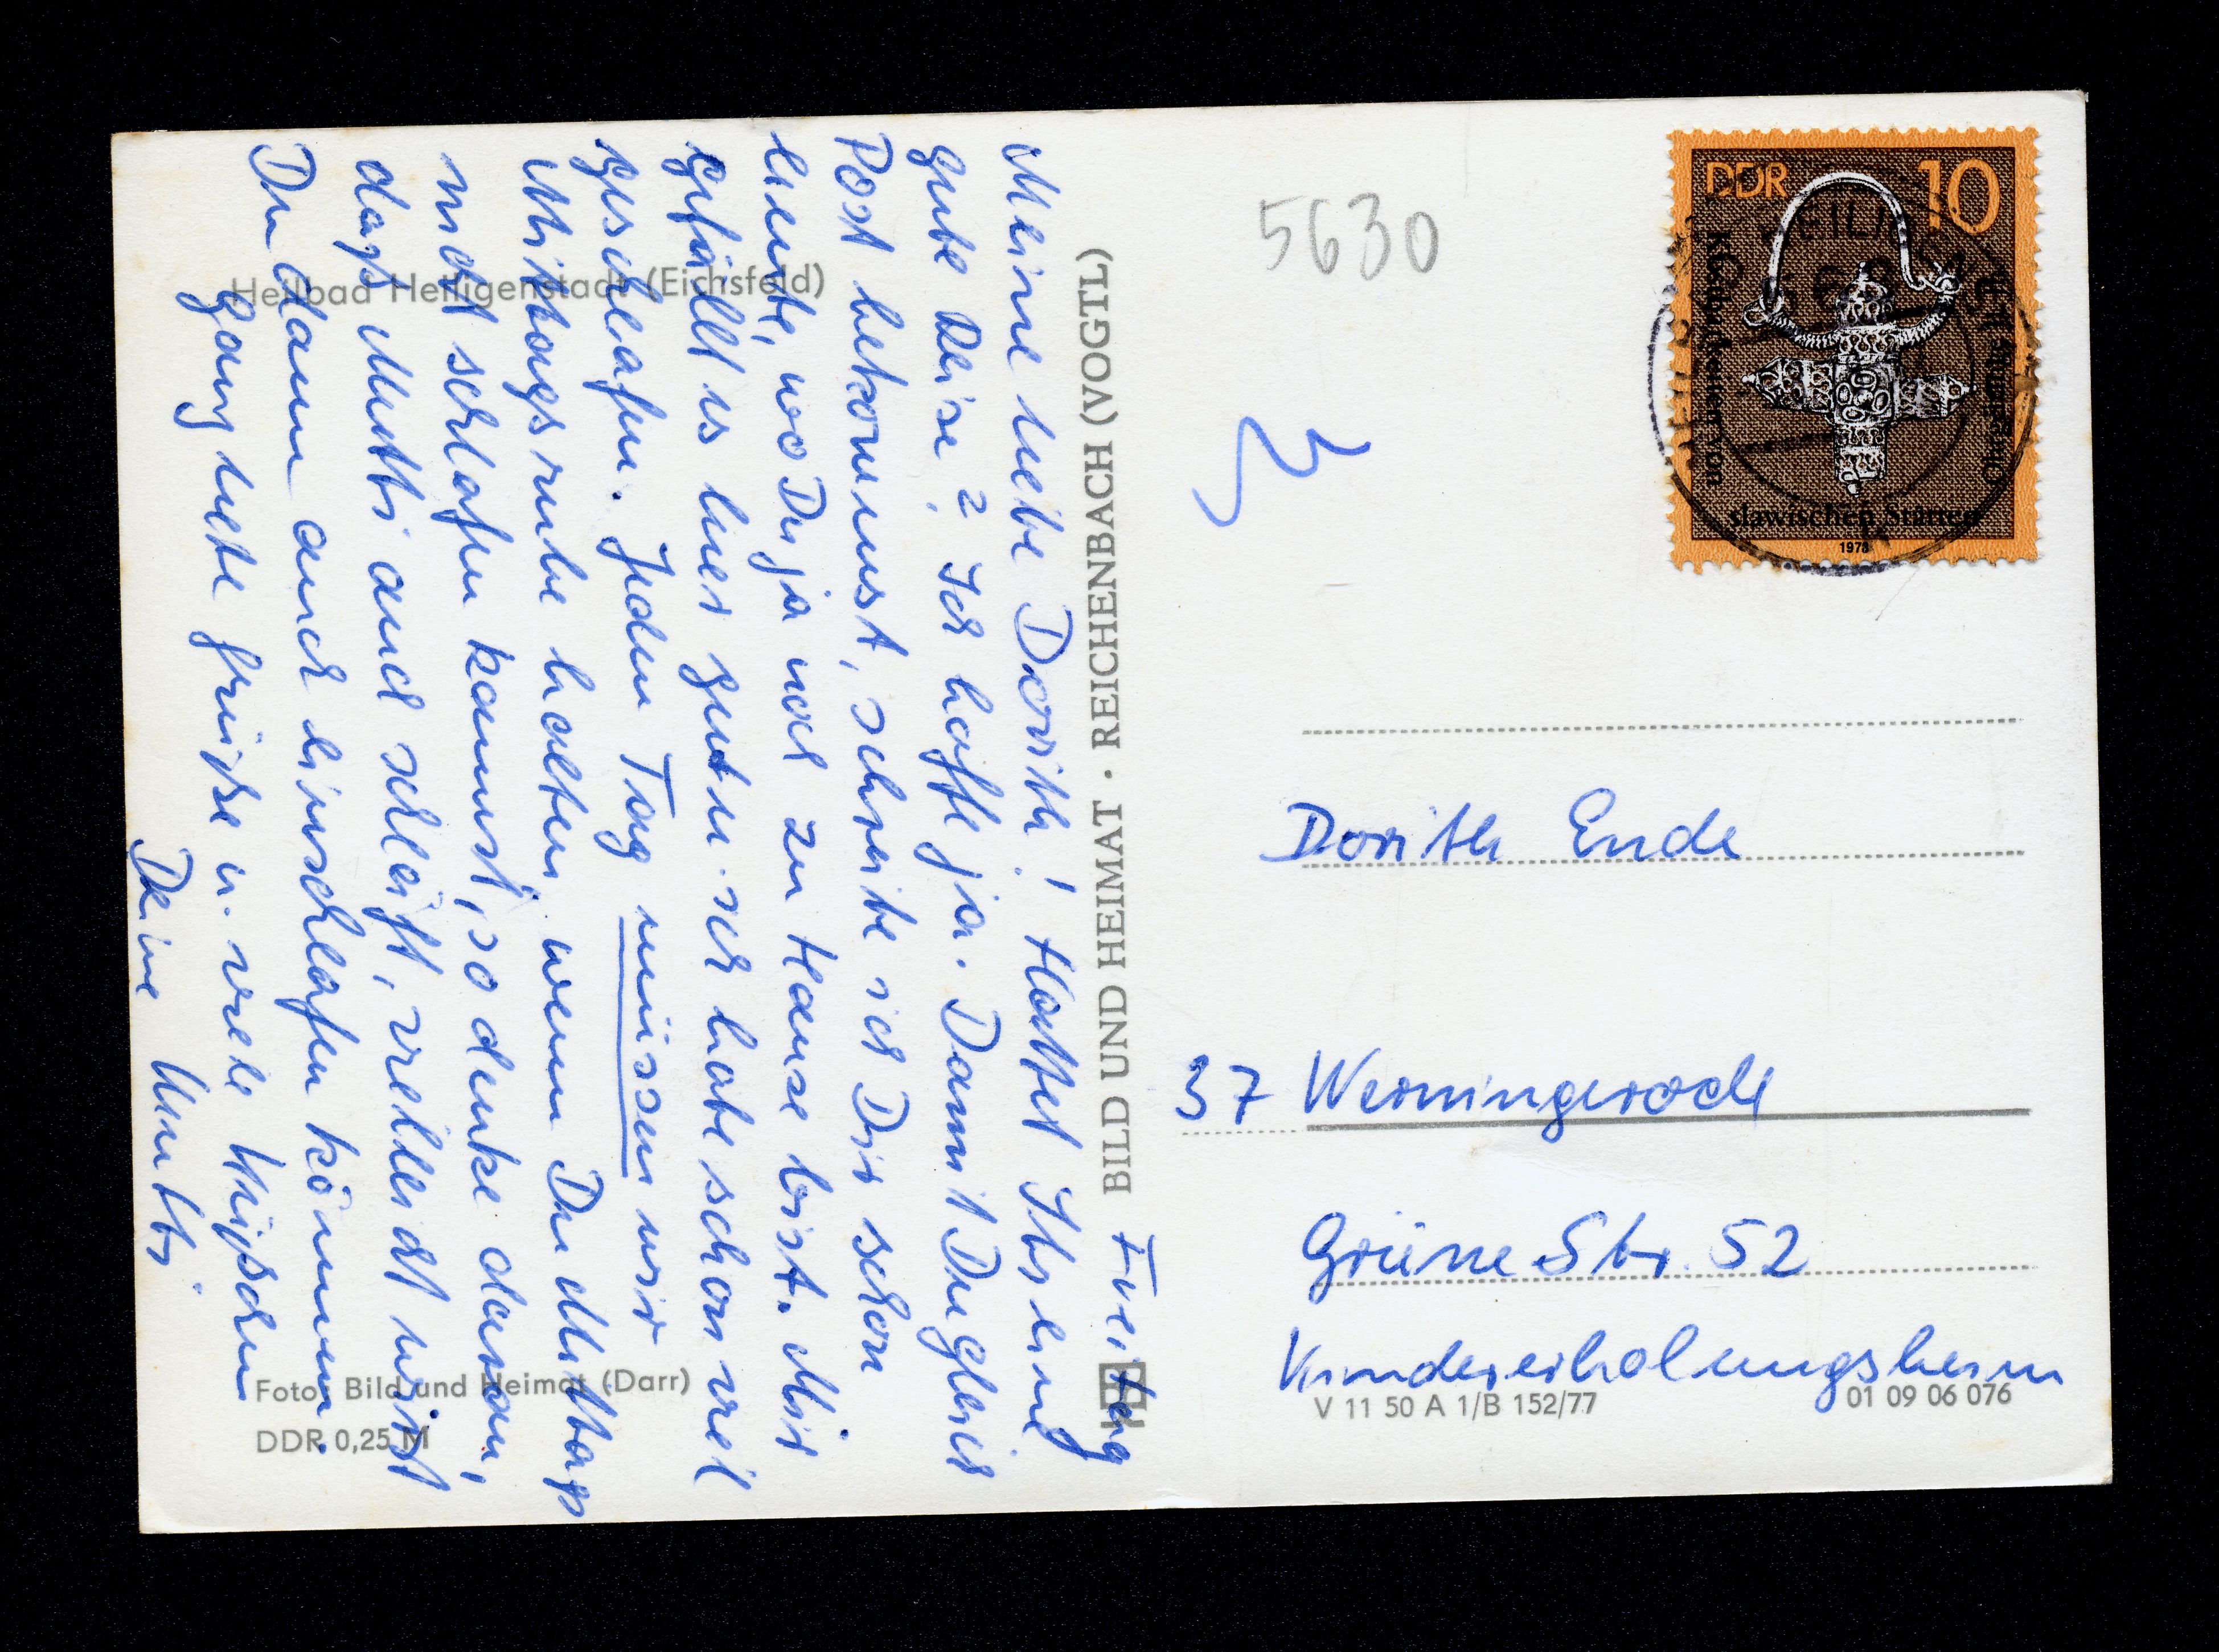 Freitag
Meine liebe Dorith! Hattet Ihr eine
gute Reise? Ich hoffe ja. Damit Du gleich
Post bekommst, schreibe ich Dir schon
heute, wo Du ja noch zu Hause bist. Mir
gefällt es hier gut u. ich habe schon viel
geschlafen. Jeden Tag müssen wir
Mittagsruhe halten, wenn Du Mittags
nicht schlafen kannst, so denke daran,
daß Mutti auch schläft, vielleicht wirst
Du dann auch einschlafen können.
Ganz liebe Grüße u. viele Küßchen
Deine Mutti.
Heilbad Heiligenstadt (Eichsfeld)
Foto: Bild und Heimat (Darr)
DDR 0,25 M
BILD UND HEIMAT · REICHENBACH (VOGTL)
5630
DDR 10
Kleinodien von
slawischen Stätten
1978
Dorith Ende
37 Wernigerode
Grüne Str. 52
Kindererholungsheim
V 11 50 A 1/B 152/77
01 09 06 076